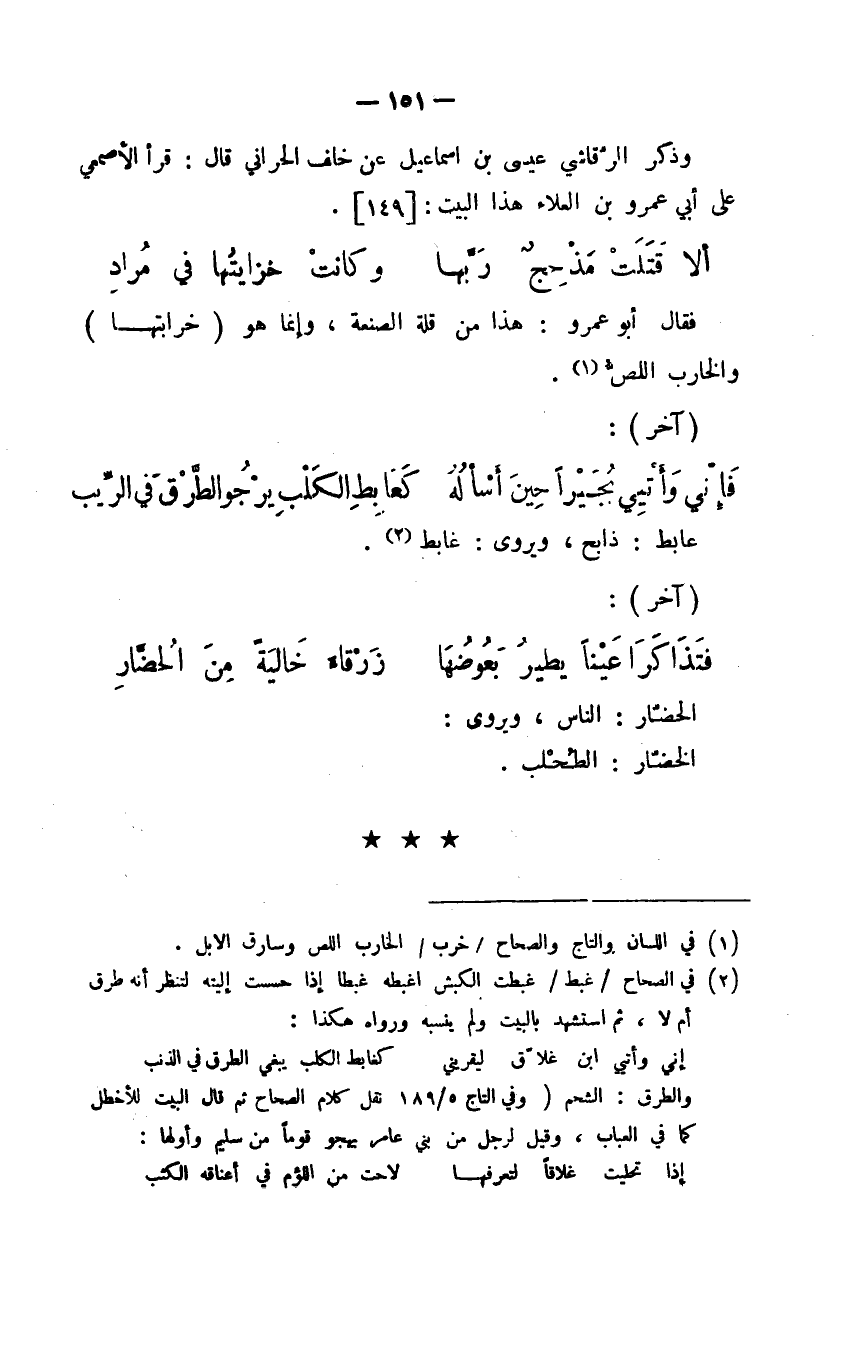 — ١٥١ —
وذكر الرقاشي عيسى بن اسماعيل عن خلف الحراني قال : قرأ الأصمعي
على أبي عمرو بن العلاء هذا البيت : [١٤٩] .
ألا قَتَلَتْ مَذْحِجٌ رَبَّهـا وكانتْ خزايتُها في مُرادِ
فقال أبو عمرو : هذا من قلة الصنعة ، وإنما هو ( خرابتهـــا )
والخارب اللصّ (١) .
( آخر ) :
فَإِنّي وَأَتْيِي بُجَيْراً حِينَ أَسْأَلُهُ كَعَابِطِ الكَلْبِ يرْجُو الطَّرْقَ في الرِّيب
عابط : ذابح ، ويروى : غابط (٢) .
( آخر ) :
فَتَذَاكَرَا عَيْناً يطيرُ بَعُوضُهَا زَرْقاءَ خَاليَةً مِنَ الُحضَّارِ
الحضـّار : الناس ، ويروى :
الخضـّار : الطـُحْلب .
★ ★ ★
(١) في اللسان والتاج والصحاح / خرب / الخارب اللص وسارق الابل .
(٢) في الصحاح / غبط / غبطت الكبش اغبطه غبطا إذا حسست إليته لتنظر أنه طرق
أم لا ، ثم استشهد بالبيت ولم ينسبه ورواه هكذا :
إني وأتيي ابن غلاّق ليقريني كغابط الكلب يبغي الطرق في الذنب
والطرق : الشحم ( وفي التاج ١٨٩/٥ نقل كلام الصحاح ثم قال البيت للأخطل
كما في العباب ، وقيل لرجل من بني عامر يهجو قوماً من سليم وأولها :
إذا تحليت غلاقاً لتعرفهـــا لاحت من اللؤم في أعناقه الكتب